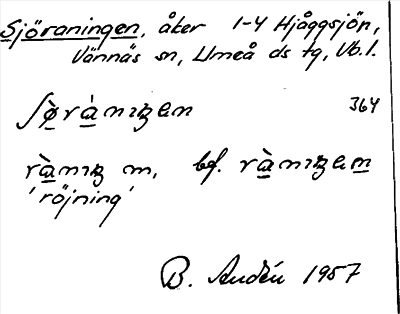 Sjöraningen, åker 1-4 Hjåggsjön,
Vännäs sn, Umeå ds tg, Vb.l.
ʃø̠̀rà̠nıꜧen 364
rà̠nıꜧ m, bf. rà̠nıꜧem̠
'röjning'
B. Audén 1957